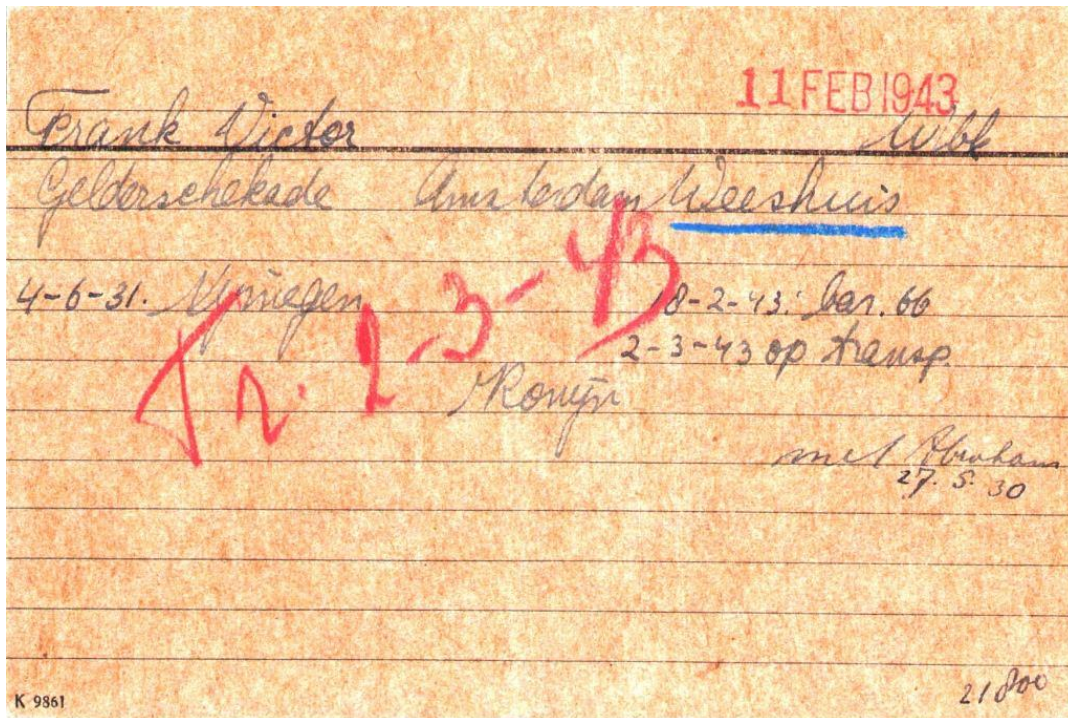 11 FEB 1943
Frank Victor Wbk
Gelderschekade Amsterdam Weeshuis
4-6-31. Nijmegen 18-2-43. bar. 66
2-3-43 op transp.
Tr. 2-3-43
met Abraham
27. 5. 30
K 9861
21800